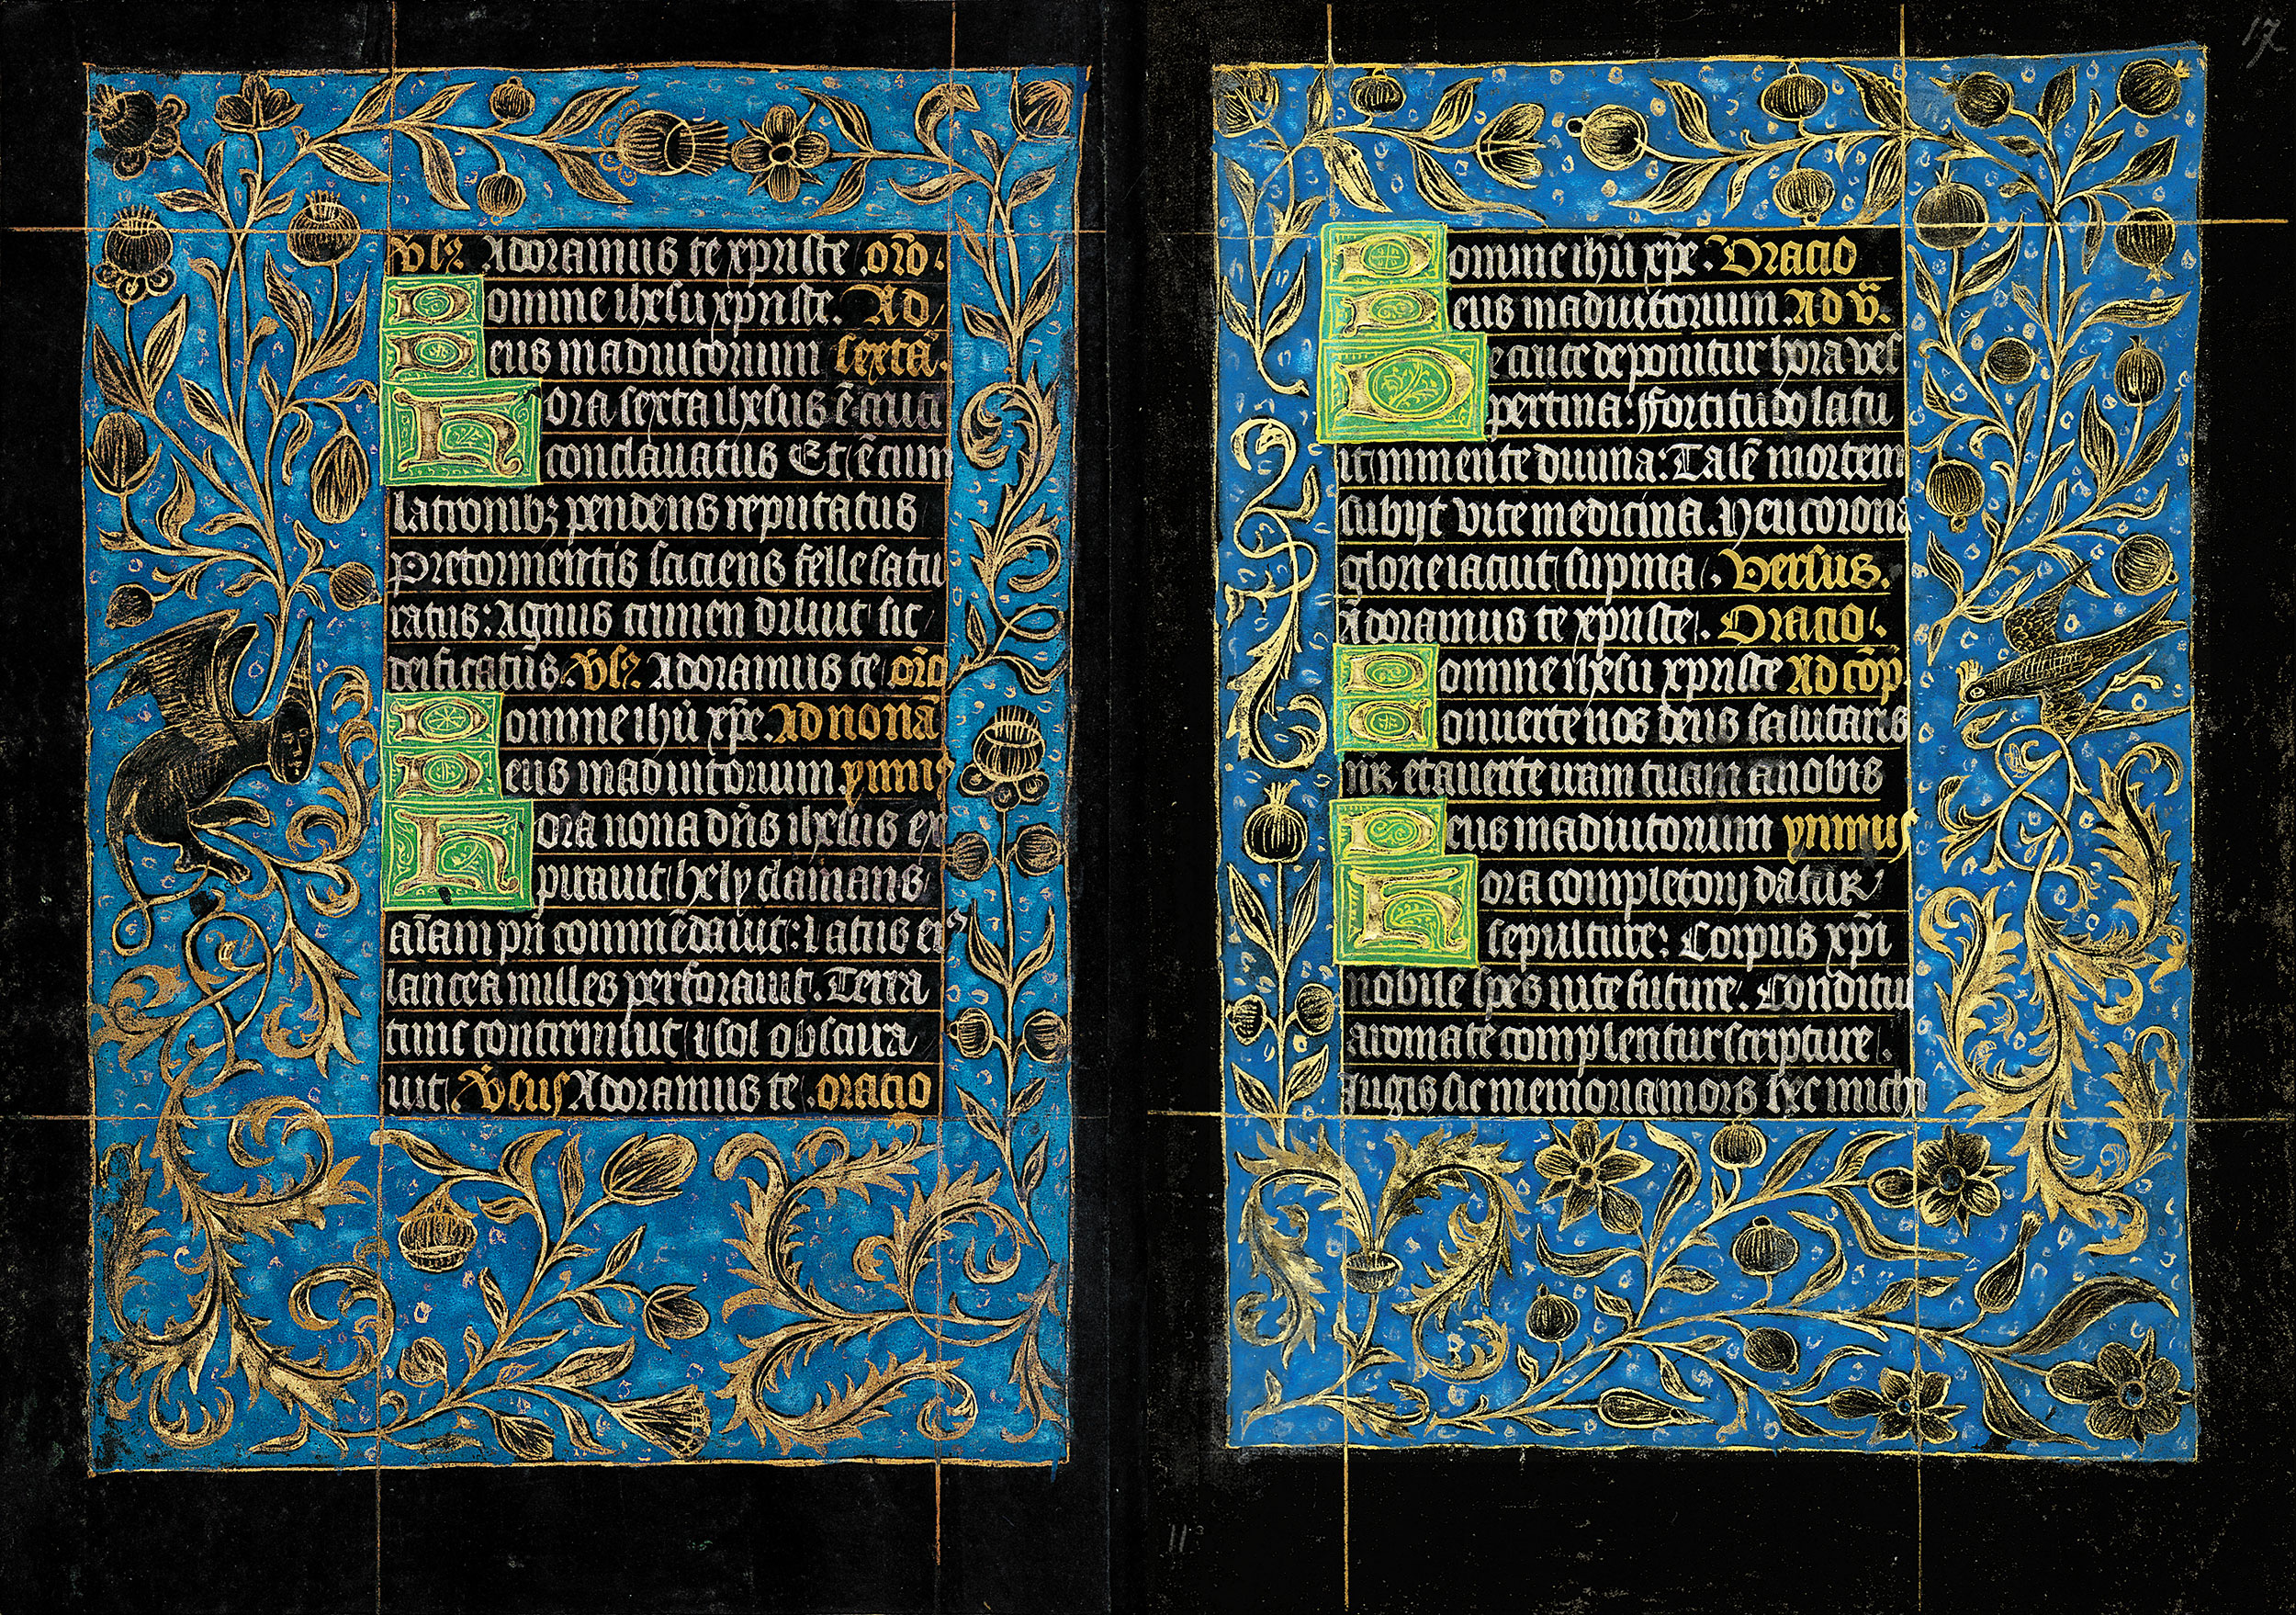 v̄sꝰ Adoramus te xpriste .oro̅.
Domine ihesu xpriste. Ad
Deus in adiutorium sexta̅.
Hora sexta ihesus e̅ cruci
conclauatus Et e̅ cum
latronibꝫ pendens reputatus
Pretormentis sciciens felle satu
ratus: Agnus crimen diluit sic
deificatus. v̄sꝰ Adoramus te oro̅
Domine ihu̅ xp̅e. Ad nona̅
Deus in adiutorium ynmꝰ
Hora nona dn̅s ihesus ex
pirauit hely clamans
a̅i̅am pr̅i comme̅dauit: Latus eiꝰ
lancea milles perforauit. Terra
tunc contremuit i sol obscura
uit v̄sus Adoramus te .oracio
17
Domine ihu̅ xp̅e. Oracio
Deus in adiutorium. Ad v̅.
De cruce deponitur hora ves
pertina: ffortitudo latu
it in mente diuina: Tale̅ mortem
subijt vite medicina. Heu corona
glorie iacuit supina. versus.
Adoramus te xpriste. Oracio.
Domine ihesu xpriste Ad co̅p̅.
Conuerte nos deus salutaris
nr̅ et auerte iram tuam a nobis
Deus in adiutorium ynmus
Hora completorij datur
sepulture: Corpus xp̅i
nobile spes uite future. Conditu
aromate complentur scripture.
Iugis sic memoria mors hec michi
11